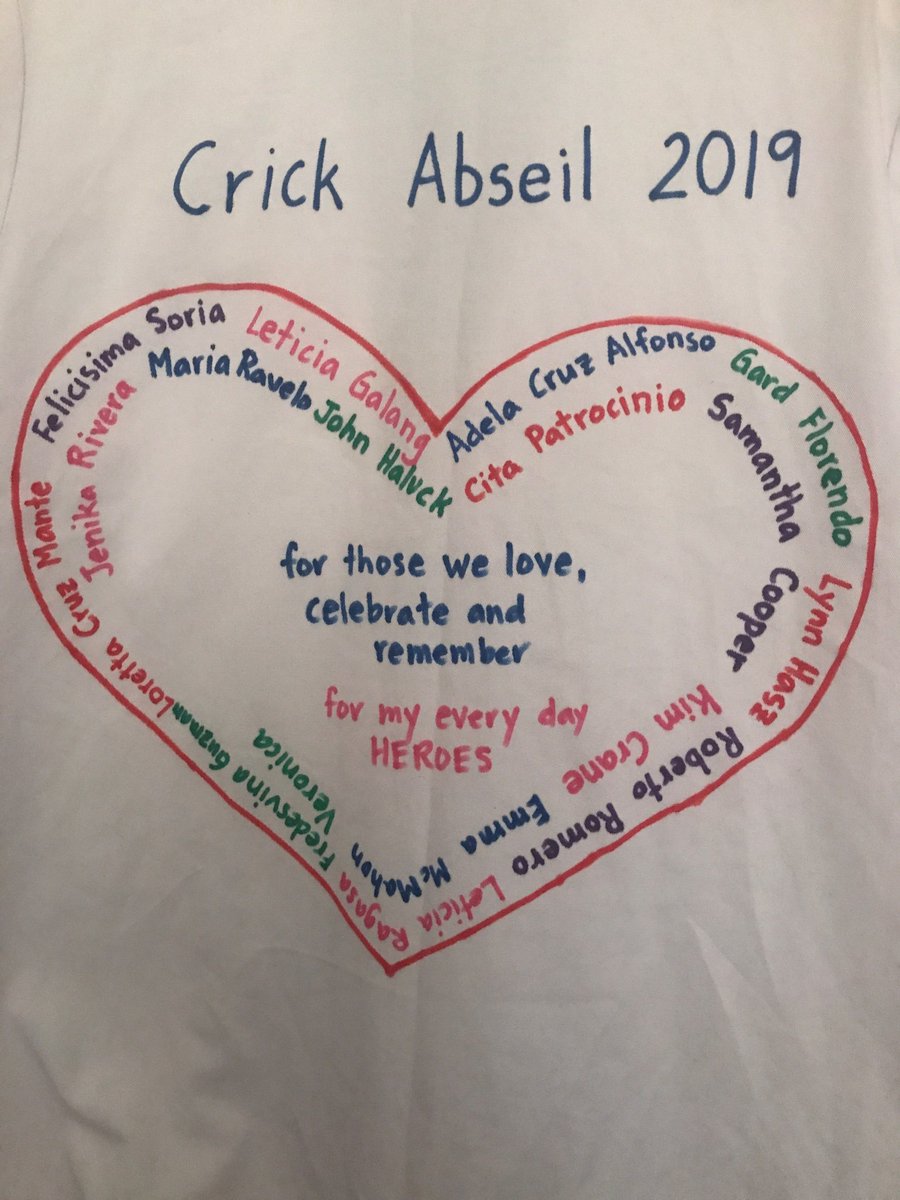 Crick Abseil 2019
Felicisima Soria
Leticia Galang
Adela Cruz Alfonso
Gard Florendo
Lynn Hasz
Roberto Romero
Leticia Ragasa
Fredesvina Guzman
Loretta Cruz Mante
Jenika Rivera
Maria Ravelo
John Haluck
Cita Patrocinio
Samantha Cooper
Kim Crane
Emma McMahon
Veronica
for those we love,
celebrate and
remember
for my every day
HEROES